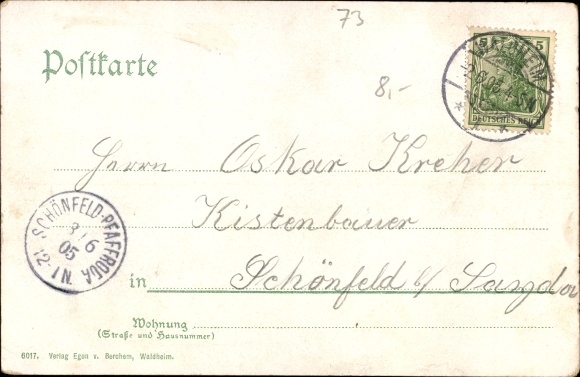 73
Postkarte
5
WALDHEIM
DEUTSCHES REICH
8,-
Herrn Oskar Kreher
Kistenbauer
in Schönfeld b/ Sayda
SCHÖNFELD-PFAFFRODA
3/6
05
12-1N.
Wohnung
(Straße und Hausnummer)
6017. Verlag Egon v. Berchem, Waldheim.